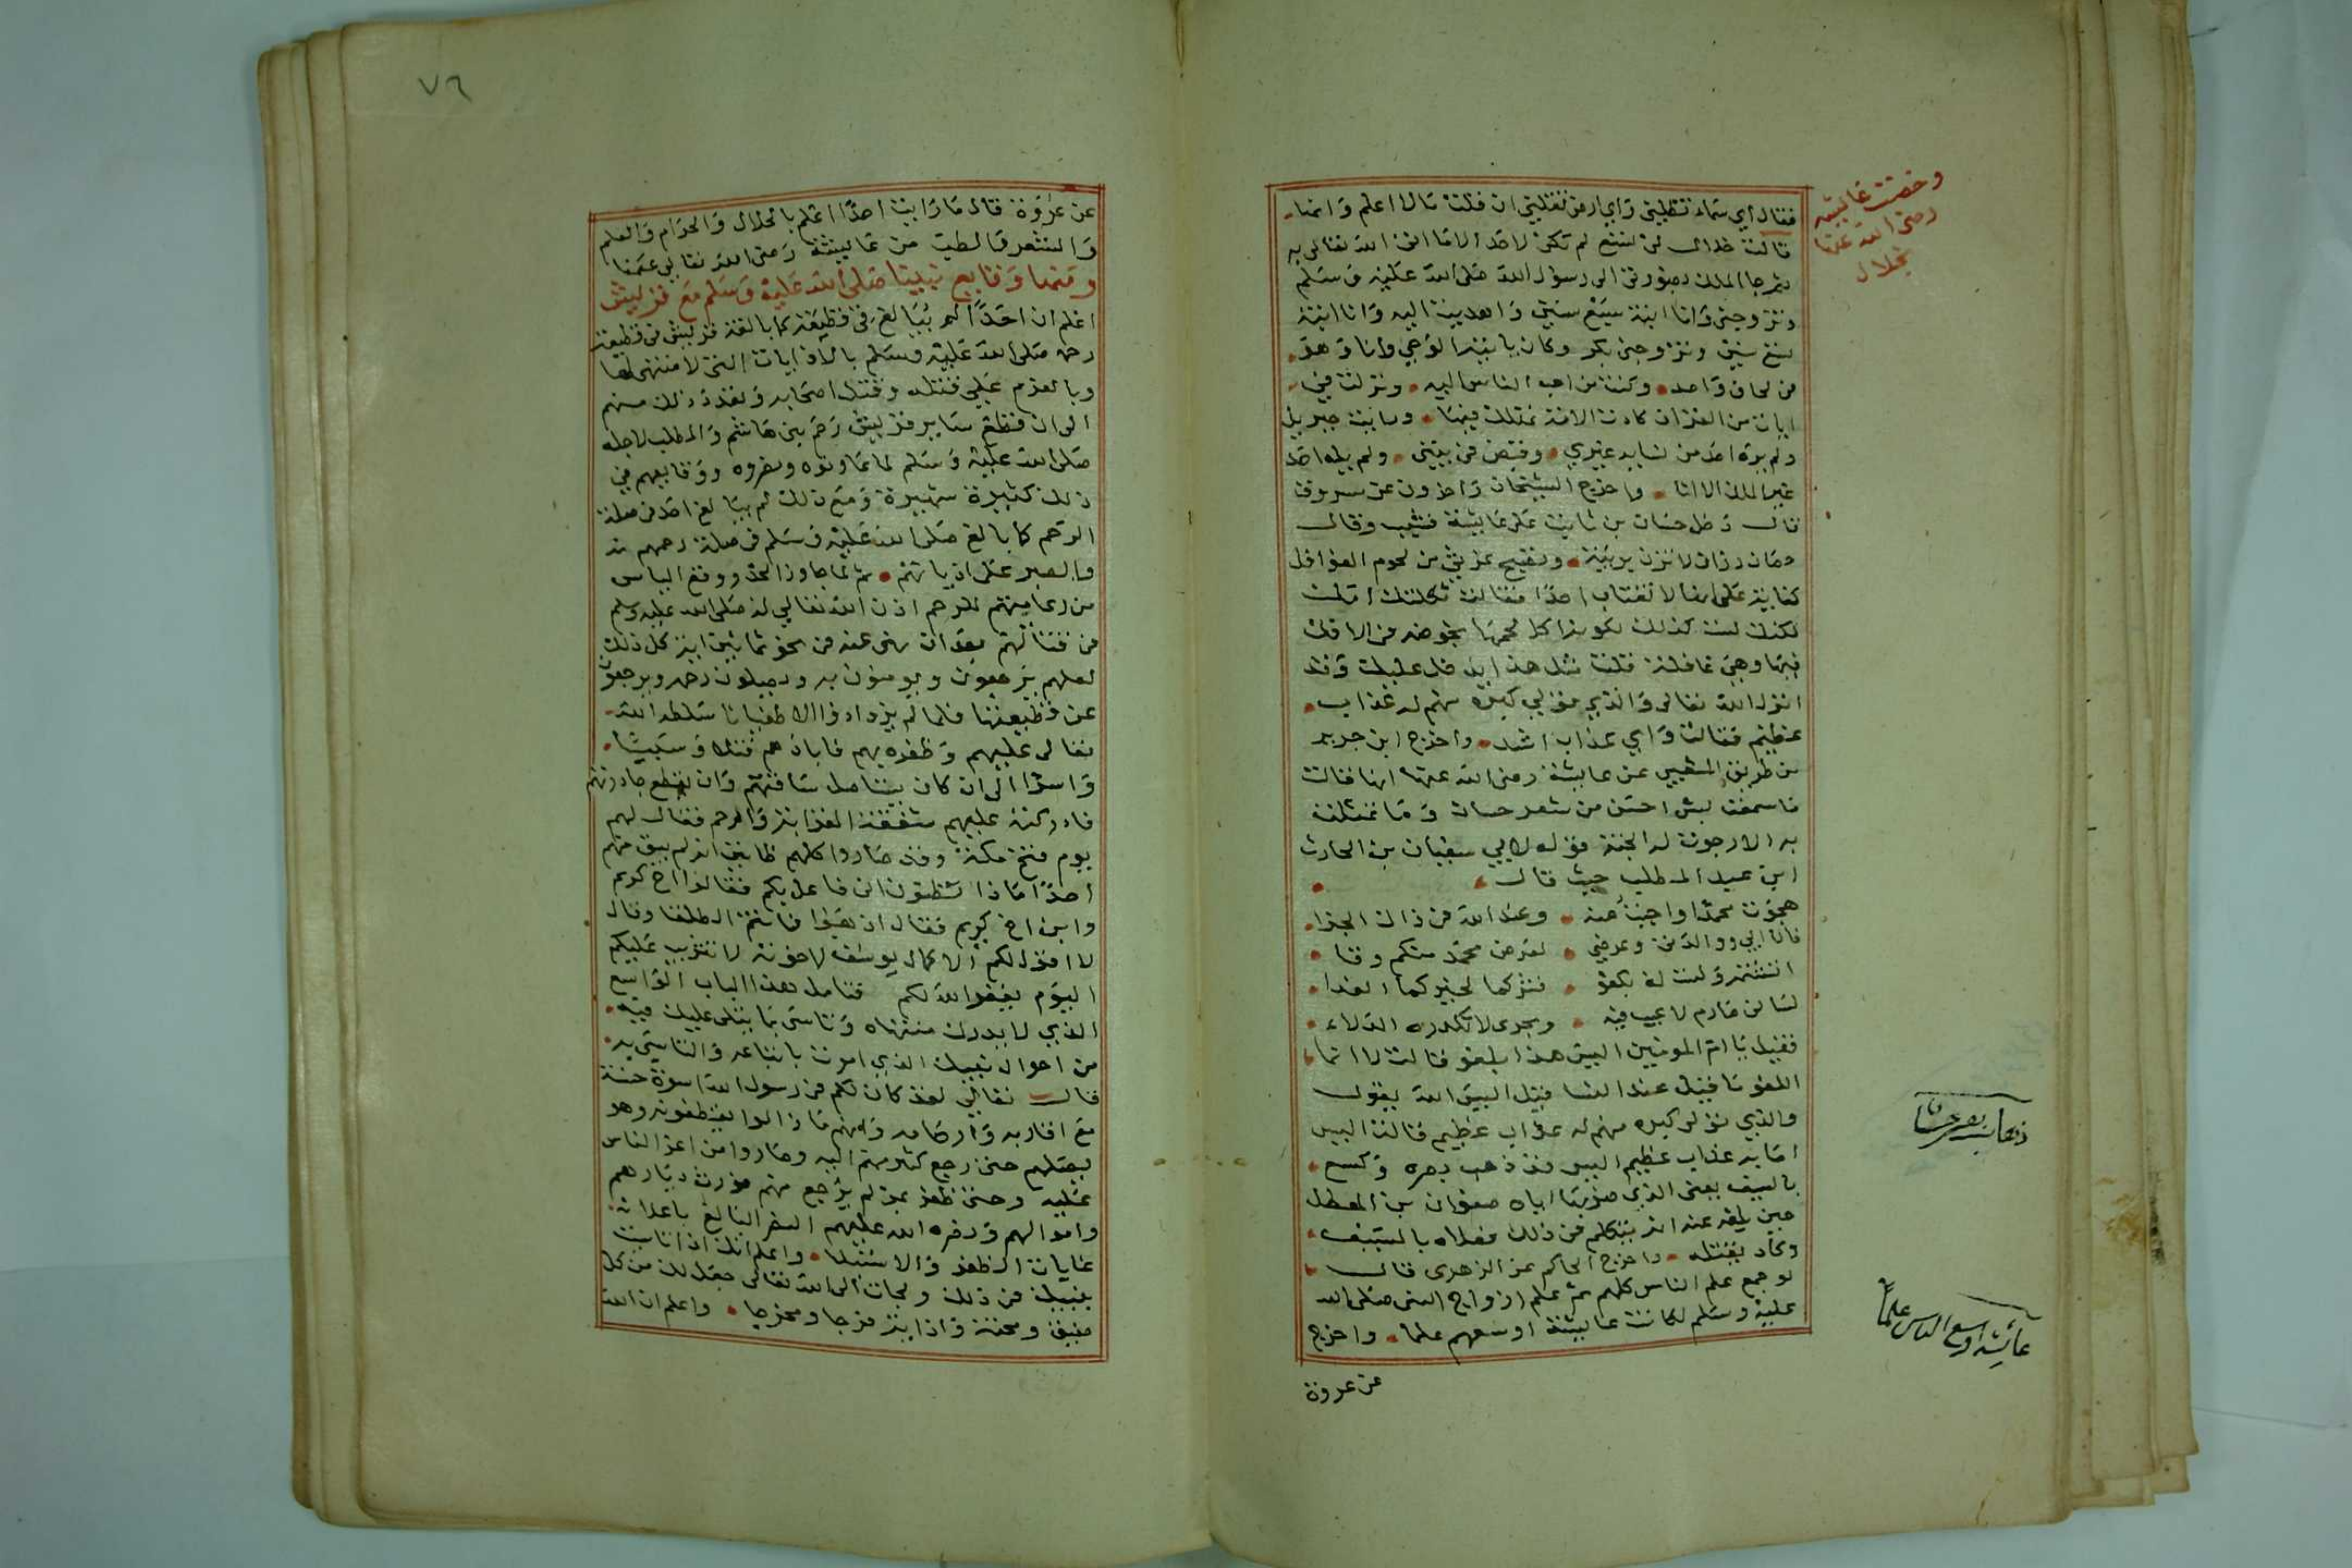 وخصت عائشة
رضي الله عنها
بخلال
فقال اي سماء تظلني واي ارض تقلني ان قلت مالا اعلم وانها
قالت خلال لي تسع لم تكن لاحد الا ما اتى الله تعالى به
جاء الملك بصورتي الى رسول الله صلى الله عليه وسلم
وتزوجني وانا ابنة سبع سنين واهديت اليه وانا ابنة
تسع سنين وتزوجني بكرا وكان ياتيه الوحي وانا وهو
في لحاف واحد وكنت من احب الناس اليه ونزلت في
ايات من القران كادت الامة تهلك فيها ورايت جبريل
ولم يره احد من نسايه غيري وقبض في بيتي ولم يله احد
غير الملك الا انا واخرج الشيخان واخرون عن مسروق
قال دخل حسان بن ثابت على عايشة فشبب وقال
حصان رزان لا تزن بريبة وتصبح غرثى من لحوم الغوافل
كناية على انها لا تغتاب احدا فقالت
لكنك لست كذلك لكونه اكل لحمها بخوضه في الافك
فيها وهي غافلة قلت مثل هذا يدخل عليك وقد
انزل الله تعالى والذي تولى كبره منهم له عذاب
عظيم فقالت واي عذاب اشد واخرج ابن جرير
من طريق الشعبي عن عايشة رضي الله عنها انها قالت
ما سمعت بشي احسن من شعر حسان وما تمثلت
به الا رجوت له الجنة قوله لابي سفيان بن الحارث
ابن عبد المطلب حيث قال
هجوت محمدا واجبت عنه وعند الله في ذاك الجزا
فان ابي ووالدتي وعرضي لعرض محمد منكم وقا
اتشتمه ولست له بكفو فشركما لخيركما الفدا
لساني صارم لا عيب فيه وبحري لا تكدره الدلاء
فقيل يا ام المومنين اليس هذا بلغو قالت لا انما
اللغو ما قيل عند النسا قيل اليس الله يقول
والذي تولى كبره منهم له عذاب عظيم قالت اليس
اصابه عذاب عظيم اليس قد ذهب بصره وكسع
بالسيف يعني الذي ضربه اياه صفوان بن المعطل
حين بلغه عنه انه يتكلم في ذلك فعلاه بالسيف
وكاد يقتله واخرج الحاكم عن الزهري قال
لو جمع علم الناس كلهم ثم علم ازواج النبي صلى الله
عليه وسلم لكانت عايشة اوسعهم علما واخرج
ذهاب بصر حسان
عائشة اوسع الناس علما
عن عروة
٧٦
عن عروة قال ما رايت احدا اعلم بالحلال والحرام والعلم
والشعر والطب من عايشة رضي الله تعالى عنها
ومنها وقايع نبينا صلى الله عليه وسلم مع قريش
اعلم ان احدا لم يبالغ في قطيعة كما بالغت قريش في قطيعة
رحمه صلى الله عليه وسلم بالاذايات التي لا منتهى لها
وبالعزم على قتله وقتل اصحابه وتعدد ذلك منهم
الى ان قطع ساير قريش رحم بني هاشم والمطلب لاجله
صلى الله عليه وسلم لما عاونوه ونصروه ووقايعهم في
ذلك كثيرة شهيرة ومع ذلك لم يبالغ احد في صلة
الرحم كما بالغ صلى الله عليه وسلم في صلة رحمهم
والصبر على اذياتهم ثم لما جاوز الحد ووقع الياس
من رعايتهم للرحم اذن الله تعالى له صلى الله عليه وسلم
في قتالهم بعد ان نهى عنه في نحو ثمانين اية كل ذلك
لعلهم يرجعون ويومنون به ويصلون رحمه ويرجعون
عن قطيعتها فلما لم يزدادوا الا طغيانا سلطه الله
تعالى عليهم وظفره بهم فابادهم قتلا وسبيا
واسرا الى ان كاد يستاصل شافتهم وان يقطع جادرتهم
فادركته عليهم شفقة القرابة والرحم فقال لهم
يوم فتح مكة وقد صاروا كلهم ظانين انه لم يبق منهم
احدا ماذا تظنون اني فاعل بكم فقالوا اخ كريم
وابن اخ كريم فقال اذهبوا فانتم الطلقا وقال
لا اقول لكم الا كما قال يوسف لاخوته لا تثريب عليكم
اليوم يغفر الله لكم فتامل هذا الباب الواسع
الذي لا يدرك منتهاه وتاسى بما يتلى عليك فيه
من احوال نبيك الذي امرت باتباعه والتاسي به
قال تعالى لقد كان لكم في رسول الله اسوة حسنة
مع اقاربه وارحامه وانهم ما زالوا يقطعونه وهو
يصلهم حتى رجع كثير منهم اليه وصاروا من اعز الناس
عليه وحتى ظفر بمن لم يرجع منهم فورث ديارهم
واموالهم ونصره الله عليهم النصر البالغ باعلا
غايات الظفر والاستيلا واعلم انك اذا تاسيت
بنبيك في ذلك ولجات الى الله تعالى جعل لك من كل
ضيق ومحنة واذاية فرجا ومخرجا واعلم ان الله